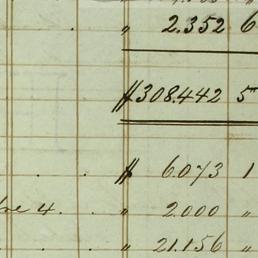 " 2.352 6
$308.442 5
$ 6.073 1
re 4. . " 2.000 "
" 21.156 "